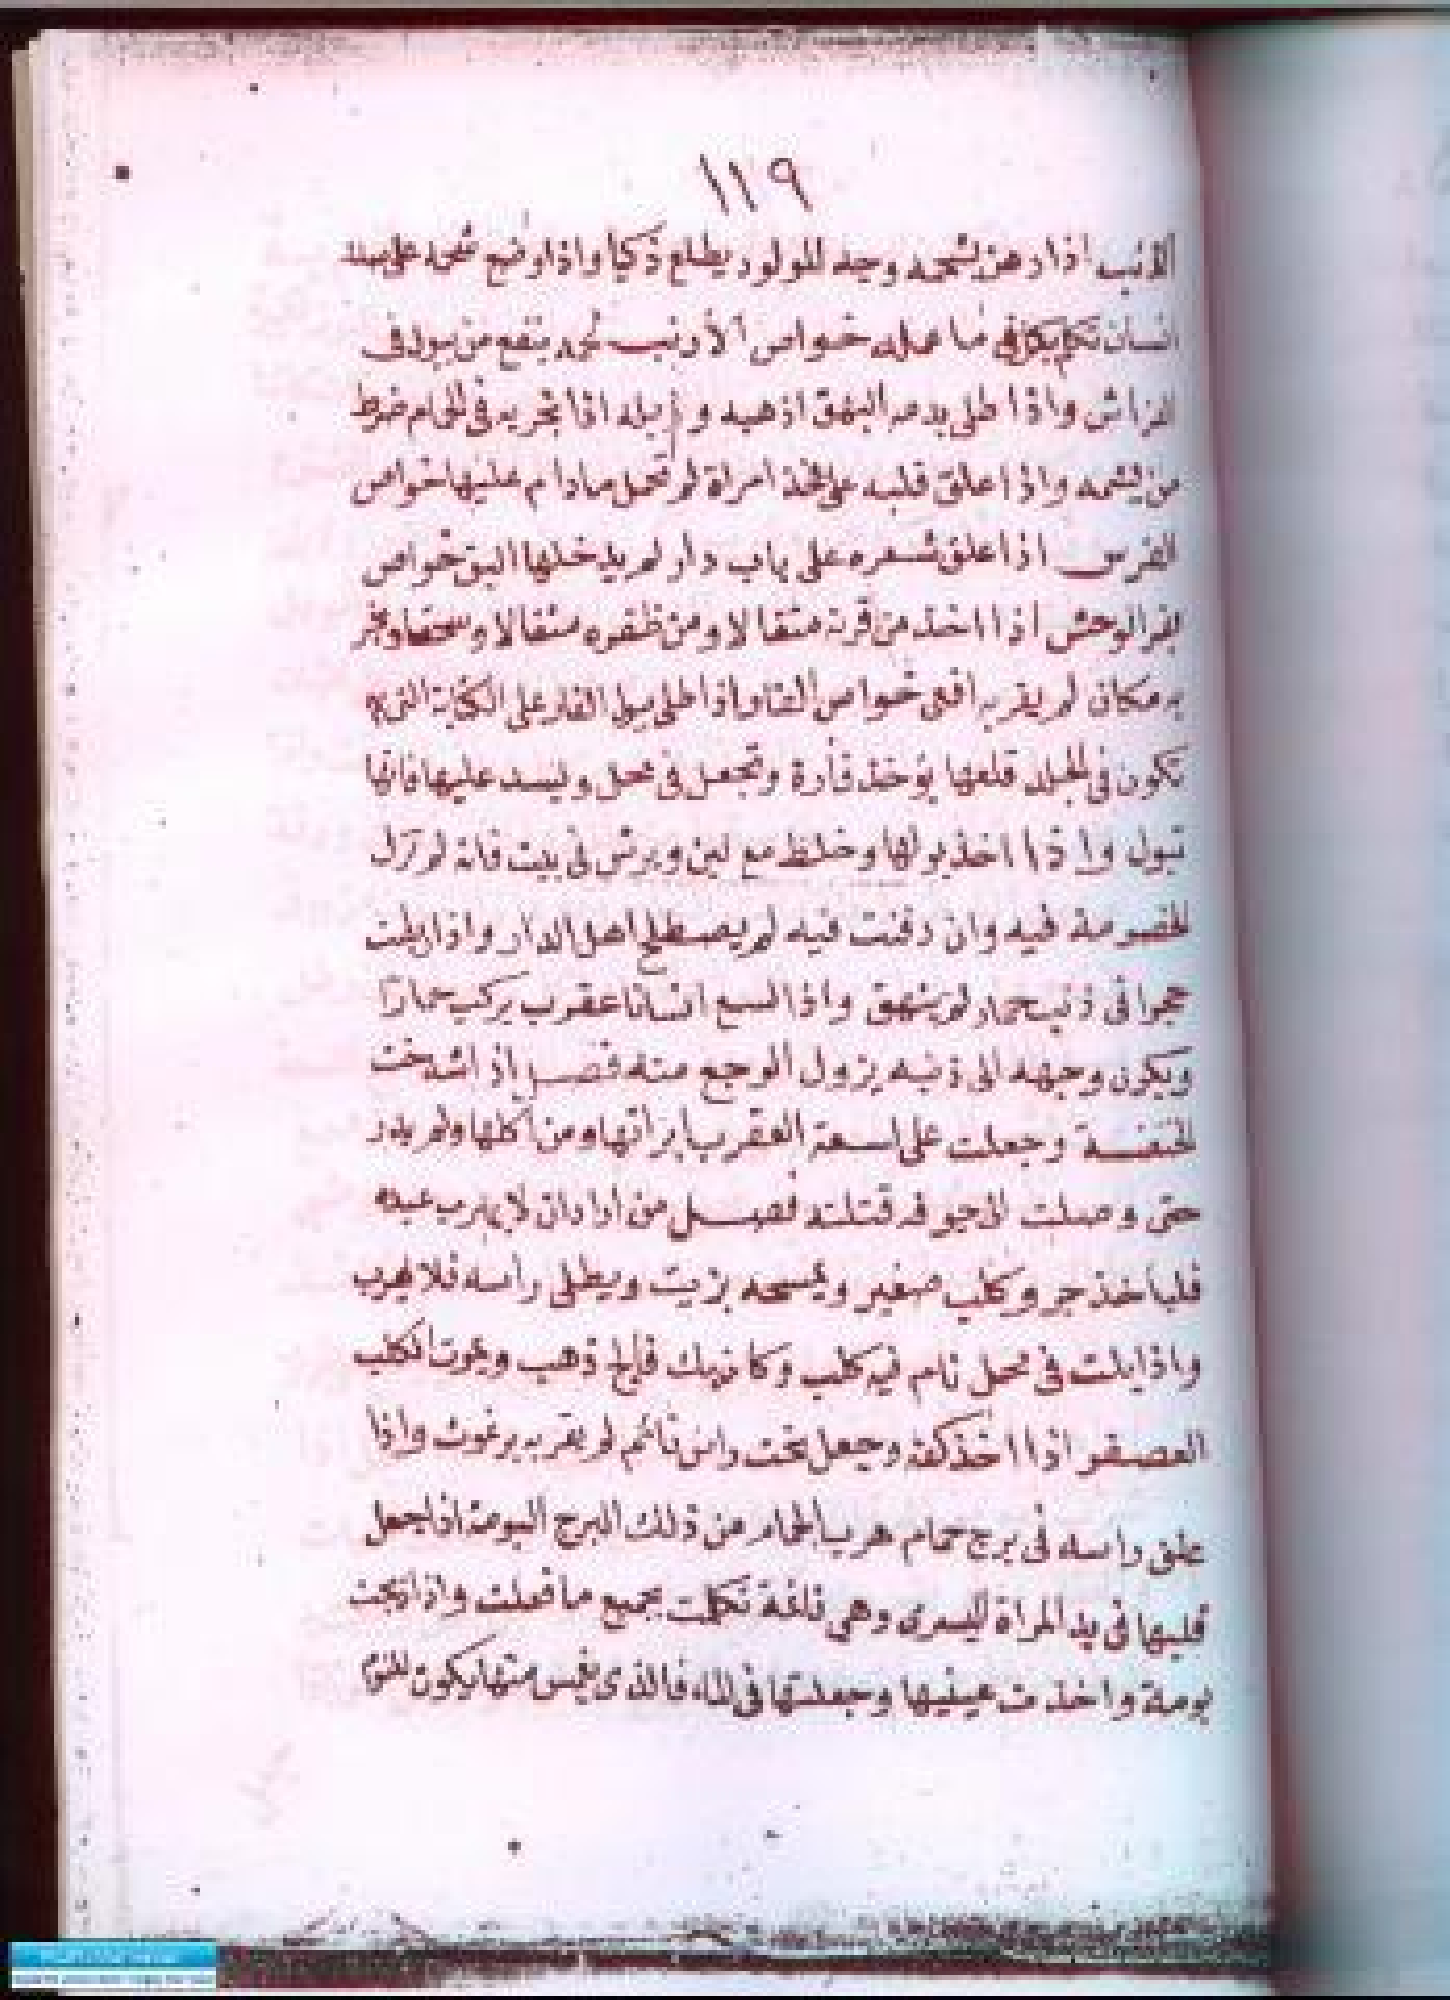 ١١٩
اذا دهن بشحمه وجه المولود يطلع ذكيا واذا وضع شحمه على
انسان تكلم بكل ما عمله خواص الأرنب ينفع من يبول فى
الفراش واذا طلى بدمه البهق اذهبه وزبله اذا تبخر به فى الحمام ضرط
من يشمه واذا علق قلبه على فخذ امراة لم تحمل مادام عليها خواص
الفرس اذا علق شعره على باب دار لم يدخلها البق خواص
بقر الوحش اذا اخذ من قرنه مثقالا ومن ظفره مثقالا وسحقا وبخر
به مكان لم يقربه افعى خواص الفار اذا طلى ببول الفار على الكتابة التى
تكون فى الجلد قلعها يوخذ فأرة وتجعل فى محل ويسد عليها فانها
تبول واذا اخذ بولها وخلط مع لبن ويرش فى بيت فانه لم تزل
الخصومة فيه وان دفنت فيه لم يصطلح اهل الدار واذا ربطت
حجرا فى ذنب حمار لم ينهق واذا لسع انسانا عقرب يركب حمارًا
ويكون وجهه الى ذنبه يزول الوجع منه فصل اذا شدخت
الخنفسة وجعلت على لسعة العقرب ابراتها ومن اكلها ولم يدر
حتى وصلت الى جوفه قتلته فصل من اراد ان لا يهرب عبده
فلياخذ جرو كلب صغير ويمسحه بزيت ويطلى راسه فلا يهرب
واذا بلت فى محل نام فيه كلب وكان بك فالج ذهب ويموت الكلب
العصفور اذا اخذ كفه وجعل تحت راس نائم لم يقربه برغوث واذا
علق راسه فى برج حمام هرب الحمام من ذلك البرج البومة اذا جعل
قلبها فى يد المراة اليسرى وهى نائمة تكلمت بجميع ما فعلت واذا ذبحت
بومة واخذت عينيها وجعلتها فى الماء فالذى يغمس منها يكون للنوم